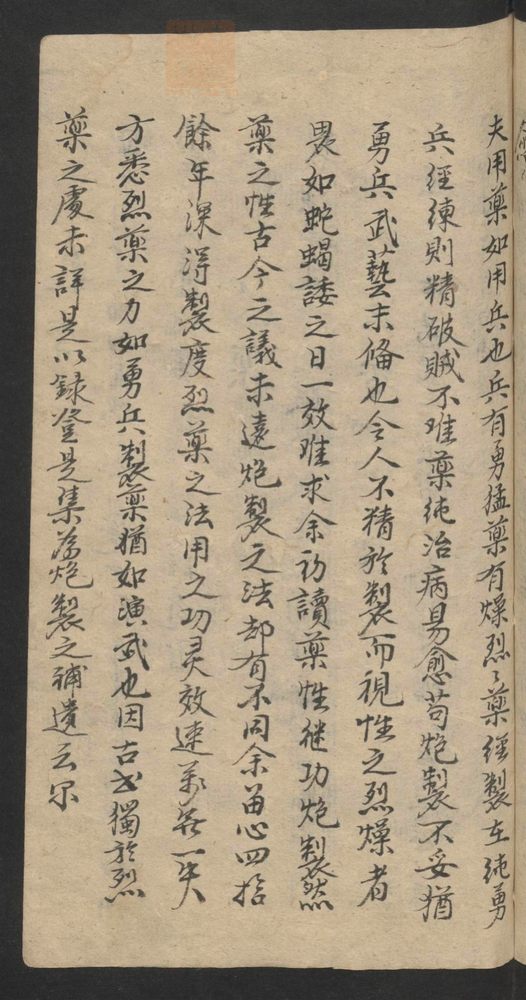 夫用藥如用兵也兵有勇猛藥有燥烈〻藥經製在純勇
兵經練則精破賊不难藥純治病易愈苟炮製不妥猶
勇兵武藝未俻也今人不精於製而視性之烈燥者
畏如蛇蝎諉之日一效难求余初讀藥性継功炮製然
藥之性古今之議未遠炮製之法却有不同余畄心四拾
餘年深得製度烈藥之法用之功灵效速萬無一失
方悉烈藥之力如勇兵製藥猶如演武也因古書獨於烈
藥之處未詳是以録登是集為炮製之補遺云尔